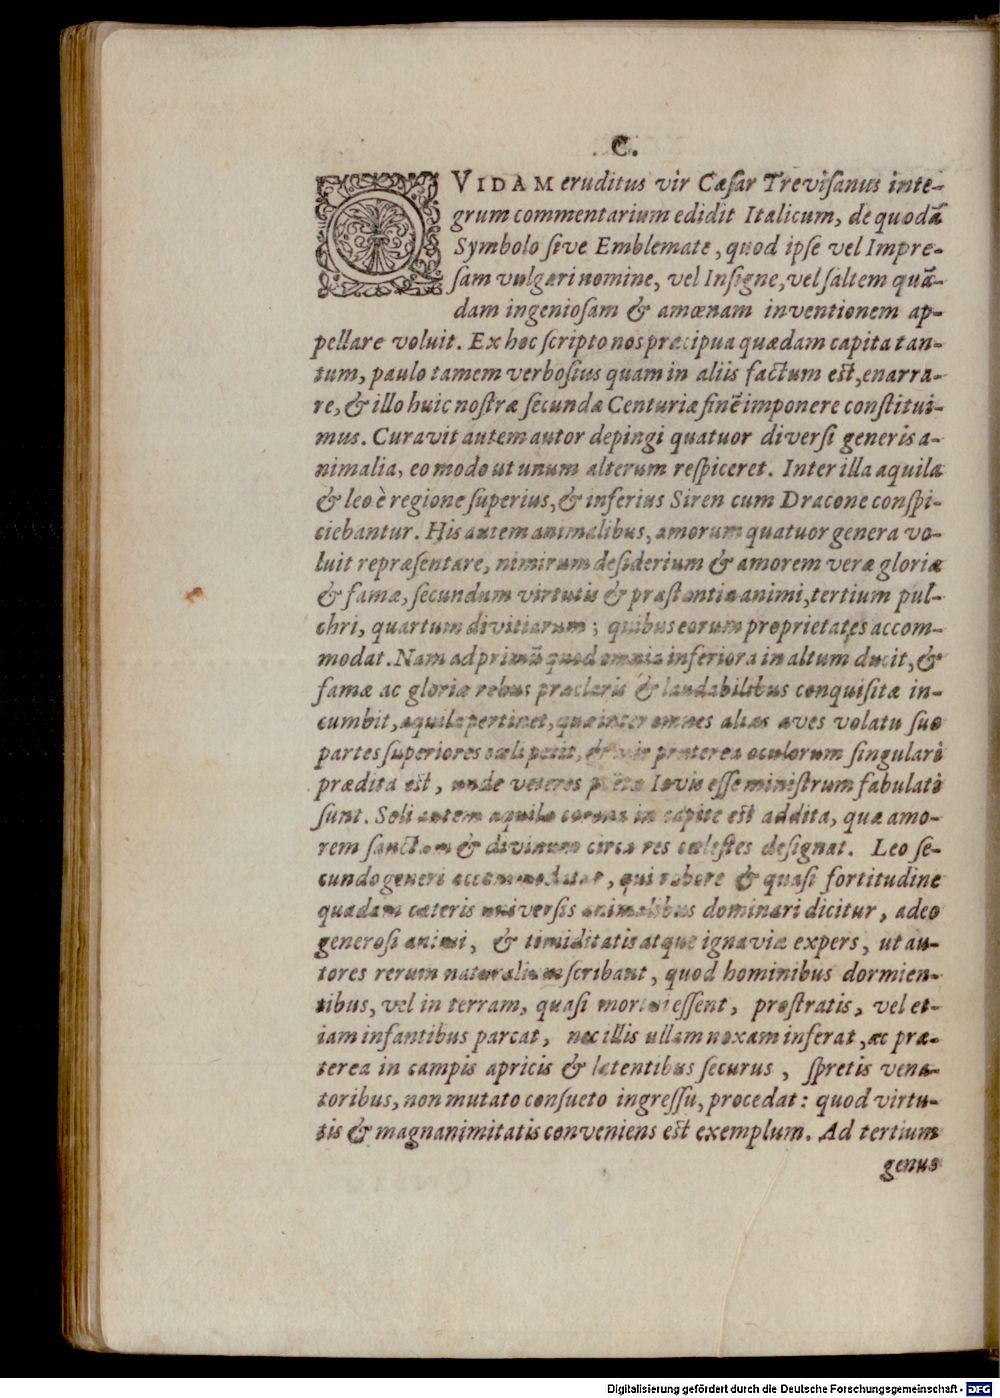 C.
QVIDAM eruditus vir Cæsar Trevisanus inte-
grum commentarium edidit Italicum, de quodā
Symbolo sive Emblemate, quod ipse vel Impre-
sam vulgari nomine, vel Insigne, vel saltem quā-
dam ingeniosam & amœnam inventionem ap-
pellare voluit. Ex hoc scripto nos præcipua quædam capita tan-
tum, paulo tamem verbosius quam in aliis factum est, enarra-
re, & illo huic nostræ secundæ Centuriæ finē imponere constitui-
mus. Curavit autem autor depingi quatuor diversi generis a-
nimalia, eo modo ut unum alterum respiceret. Inter illa aquila
& leo è regione superius, & inferius Siren cum Dracone conspi-
ciebantur. His autem animalibus, amorum quatuor genera vo-
luit repræsentare, nimirum desiderium & amorem veræ gloriæ
& famæ, secundum virtutis & præstantiæ animi, tertium pul-
chri, quartum divitiarum; quibus eorum proprietates accom-
modat. Nam ad primū quod omnia inferiora in altum ducit, &
famæ ac gloriæ rebus præclaris & laudabilibus conquisitæ in-
cumbit, aquila pertinet, quæ inter omnes alias aves volatu suo
partes superiores cæli petit, & præterea oculorum singulari
prædita est, unde veteres Iovis esse ministrum fabulati
sunt. Soli autem aquilæ corona in capite est addita, quæ amo-
rem sanctum & divinum circa res cœlestes designat. Leo se-
cundo generi accommodatur, qui robore & quasi fortitudine
quadam cæteris universis animalibus dominari dicitur, adeo
generosi animi, & timiditatis atque ignaviæ expers, ut au-
tores rerum naturalium scribant, quod hominibus dormien-
tibus, vel in terram, quasi mortui essent, prostratis, vel et-
iam infantibus parcat, nec illis ullam noxam inferat, ac præ-
terea in campis apricis & latentibus securus, spretis vena-
toribus, non mutato consueto ingressu, procedat: quod virtu-
tis & magnanimitatis conveniens est exemplum. Ad tertium
genus
Digitalisierung gefördert durch die Deutsche Forschungsgemeinschaft - DFG